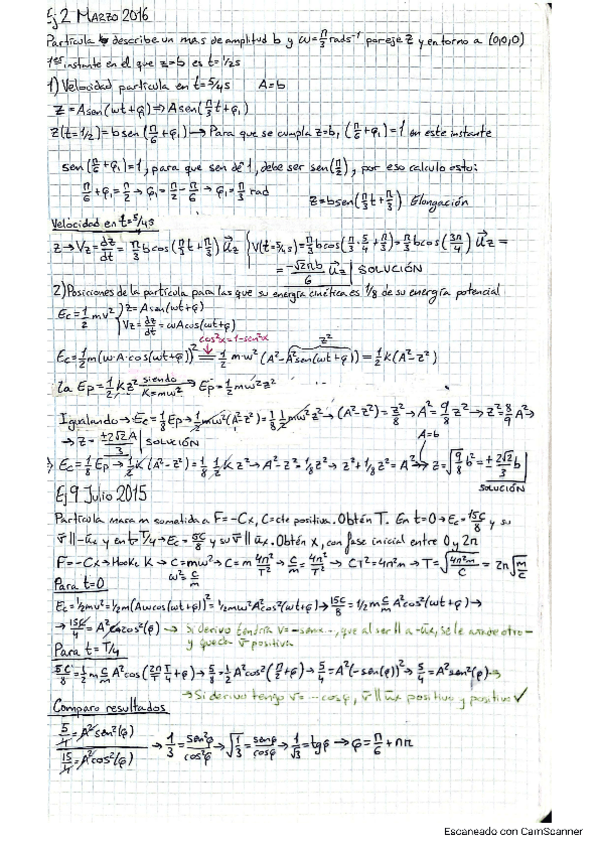 Ej 2 Marzo 2016
Partícula describe un mas de amplitud b y ω=π/3 rads⁻¹ por eje z y entorno a (0,0,0)
1er instante en el que z=b es t=1/2s
1) Velocidad partícula en t=5/4s A=b
Z=Asen(ωt+φ)⇒Asen(π/3 t+φ₁)
Z(t=1/2)=bsen(π/6+φ₁)→Para que se cumpla z=b, (π/6+φ₁)=1 en este instante
sen(π/6+φ₁)=1, para que sen dé 1, debe ser sen(π/2), por eso calculo esto:
π/6+φ₁=π/2→φ₁=π/2-π/6→φ₁=π/3 rad Z=bsen(π/3t+π/3) Elongación
Velocidad en t=5/4s
Z→Vz=dz/dt=π/3 bcos(π/3t+π/3) u⃗z V(t=5/4s)=π/3 bcos(π/3·5/4+π/3)=π/3 bcos(3π/4) u⃗z=
=-√2πb/6 u⃗z SOLUCIÓN
2) Posiciones de la partícula para las que su energía cinética es 1/8 de su energía potencial
Ec=1/2mv² Z=Asen(ωt+φ)
Vz=dz/dt=ωAcos(ωt+φ)
cos²x=1-sen²x z²
Ec=1/2m(ω·A·cos(ωt+φ))²=1/2m·ω²(A²-A²sen(ωt+φ))=1/2k(A²-z²)
la Ep=1/2Kz² siendo K=mω² Ep=1/2mω²z²
Igualando→Ec=1/8Ep→1/2mω²(A²-z²)=1/8 1/2mω²z²→(A²-z²)=z²/8→A²=9/8z²→z²=8/9A²→
→Z=±2√2A/3 SOLUCIÓN A=b
Ec=1/8Ep→1/2K(A²-z²)=1/8 1/2Kz²→A²-z²=1/8z²→z²+1/8z²=A²→z=√9/8b²=±2√2/3b
SOLUCIÓN
Ej 9 Julio 2015
Partícula masa m sometida a F=-Cx, C=cte positiva. Obtén T. En t=0→Ec=15C/8 y su
v⃗||-u⃗x y en t=T/4→Ec=5C/8 y su v⃗||u⃗x. Obtén x, con fase inicial entre 0 y 2π
F=-Cx→Hooke K→C=mω²→C=m 4π²/T²→C/m=4π²/T²→CT²=4π²m→T=√4π²m/C=2π√m/C
Para t=0 ω²=C/m
Ec=1/2mv²=1/2m(Aωcos(ωt+φ))²=1/2mω²A²cos²(ωt+φ)→15C/8=1/2m C/m A²cos²(ωt+φ)→
→15/4=A²cos²(φ)→ Si derivo tendría v=-senx, que al ser || a -u⃗x, se le añade otro -
y queda v⃗ positiva
Para t=T/4
5C/8=1/2m C/m A²cos(2π/T T/4+φ)→5/8=1/2A²cos²(π/2+φ)→5/4=A²(-sen(φ))²→5/4=A²sen²(φ)→
→Si derivo tengo v=--cosφ, v⃗||u⃗x positivo y positivo✓
Comparo resultados
5/4=A²sen²(φ)
15/4=A²cos²(φ) →1/3=sen²φ/cos²φ→√1/3=senφ/cosφ→1/√3=tgφ→φ=π/6+nπ
Escaneado con CamScanner